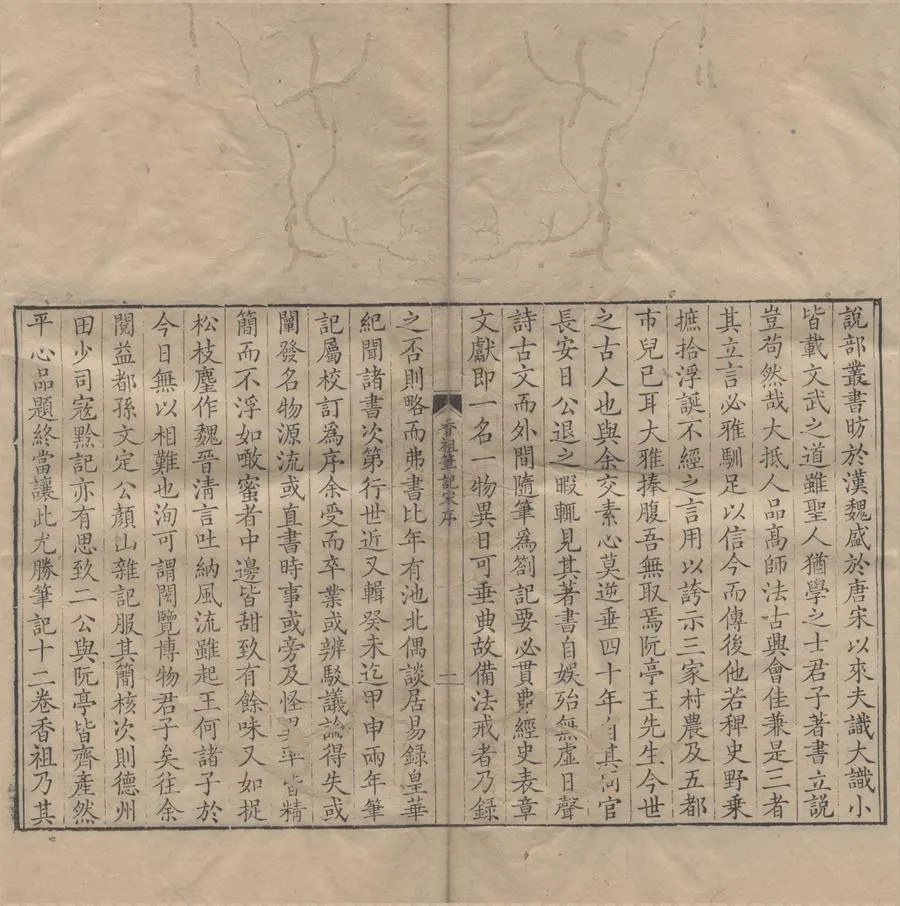 說部叢書昉於漢魏盛於唐宋以來夫識大識小
皆載文武之道雖聖人猶學之士君子著書立說
豈苟然哉大抵人品高師法古興會佳兼是三者
其立言必雅馴足以信今而傳後他若稗史野乘
摭拾浮誕不經之言用以誇示三家村農及五都
市兒已耳大雅捧腹吾無取焉阮亭王先生今世
之古人也與余交素心莫逆垂四十年自其何官
長安日公退之暇輒見其著書自娛殆無虛日聲
詩古文而外間隨筆為劄記要必貫弗經史表章
文獻即一名一物異日可垂典故備法戒者乃錄
香祖筆記宋序
一
之否則略而弗書比年有池北偶談居易錄皇華
紀聞諸書次第行世近又輯癸未迄甲申兩年筆
記屬校訂為序余受而卒業或辨駁議論得失或
闡發名物源流或直書時事或旁及怪異率皆精
簡而不浮如噉蜜者中邊皆甜致有餘味又如捉
松枝麈作魏晉清言吐納風流雖起王何諸子於
今日無以相難也洵可謂閎覽博物君子矣往余
閱益都孫文定公顏山雜記服其簡核次則德州
田少司寇黔記亦有思致二公與阮亭皆齊產然
平心品題終當讓此尤勝筆記十二卷香祖乃其